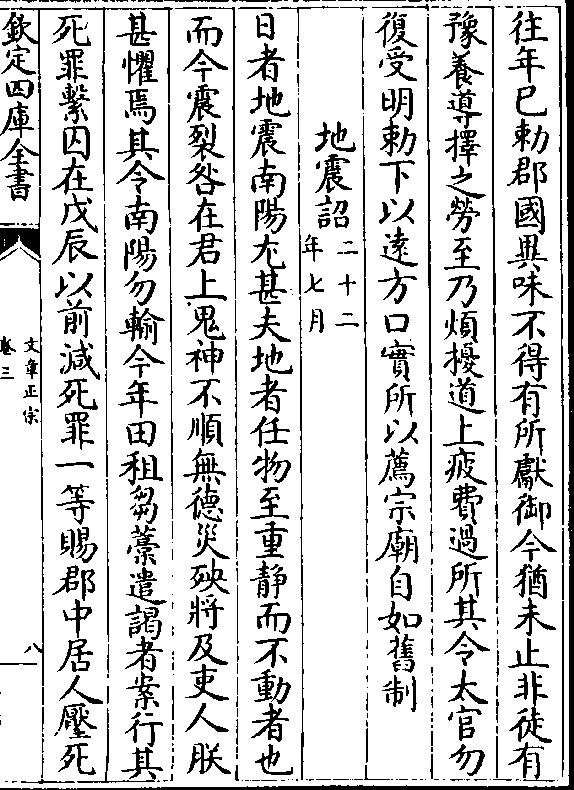 往年已勅郡國異味不得有所獻御今猶未止非徒有
豫養導擇之勞至乃煩擾道上疲費過所其令太官勿
復受明勅下以逺方口實所以薦宗廟自如舊制
地震詔二十二年七月
日者地震南陽尤甚夫地者任物至重靜而不動者也
而今震裂咎在君上鬼神不順無德災殃將及吏人朕
甚懼焉其令南陽勿輸今年田租芻藁遣謁者案行其
死罪繫囚在戊辰以前減死罪一等賜郡中居人壓死
欽定四庫全書
文章正宗
卷三
八